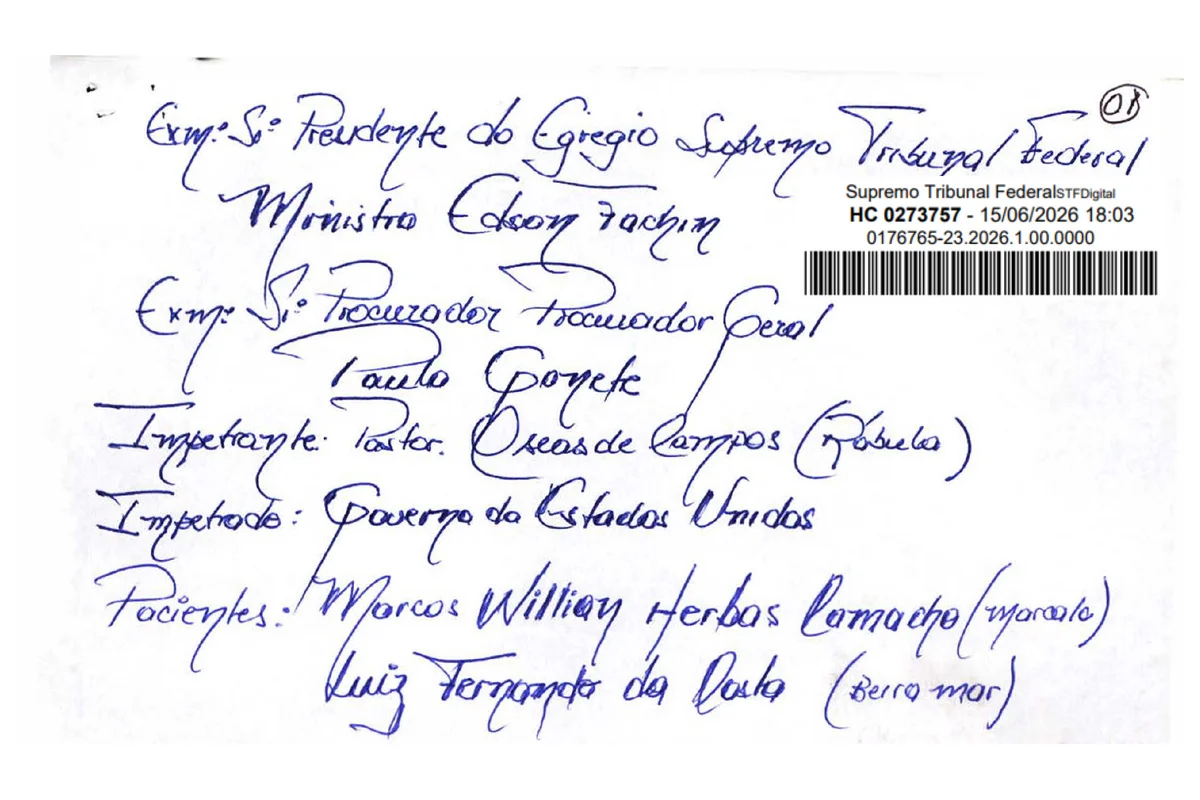 01
Exmº Srº Presidente do Egregio Supremo Tribunal Federal
Ministro Edson Fachin
Supremo Tribunal FederalSTFDigital
HC 0273757 - 15/06/2026 18:03
0176765-23.2026.1.00.0000
Exmº Srº Procurador Procurador Geral
Paulo Gonete
Impetrante: Pastor. Oseas de Campos (Rábula)
Impetrado: Governo do Estados Unidos
Pacientes: Marcos Willian Herbas Camacho (Marcola)
Luiz Fernando da Costa (Beira mar)